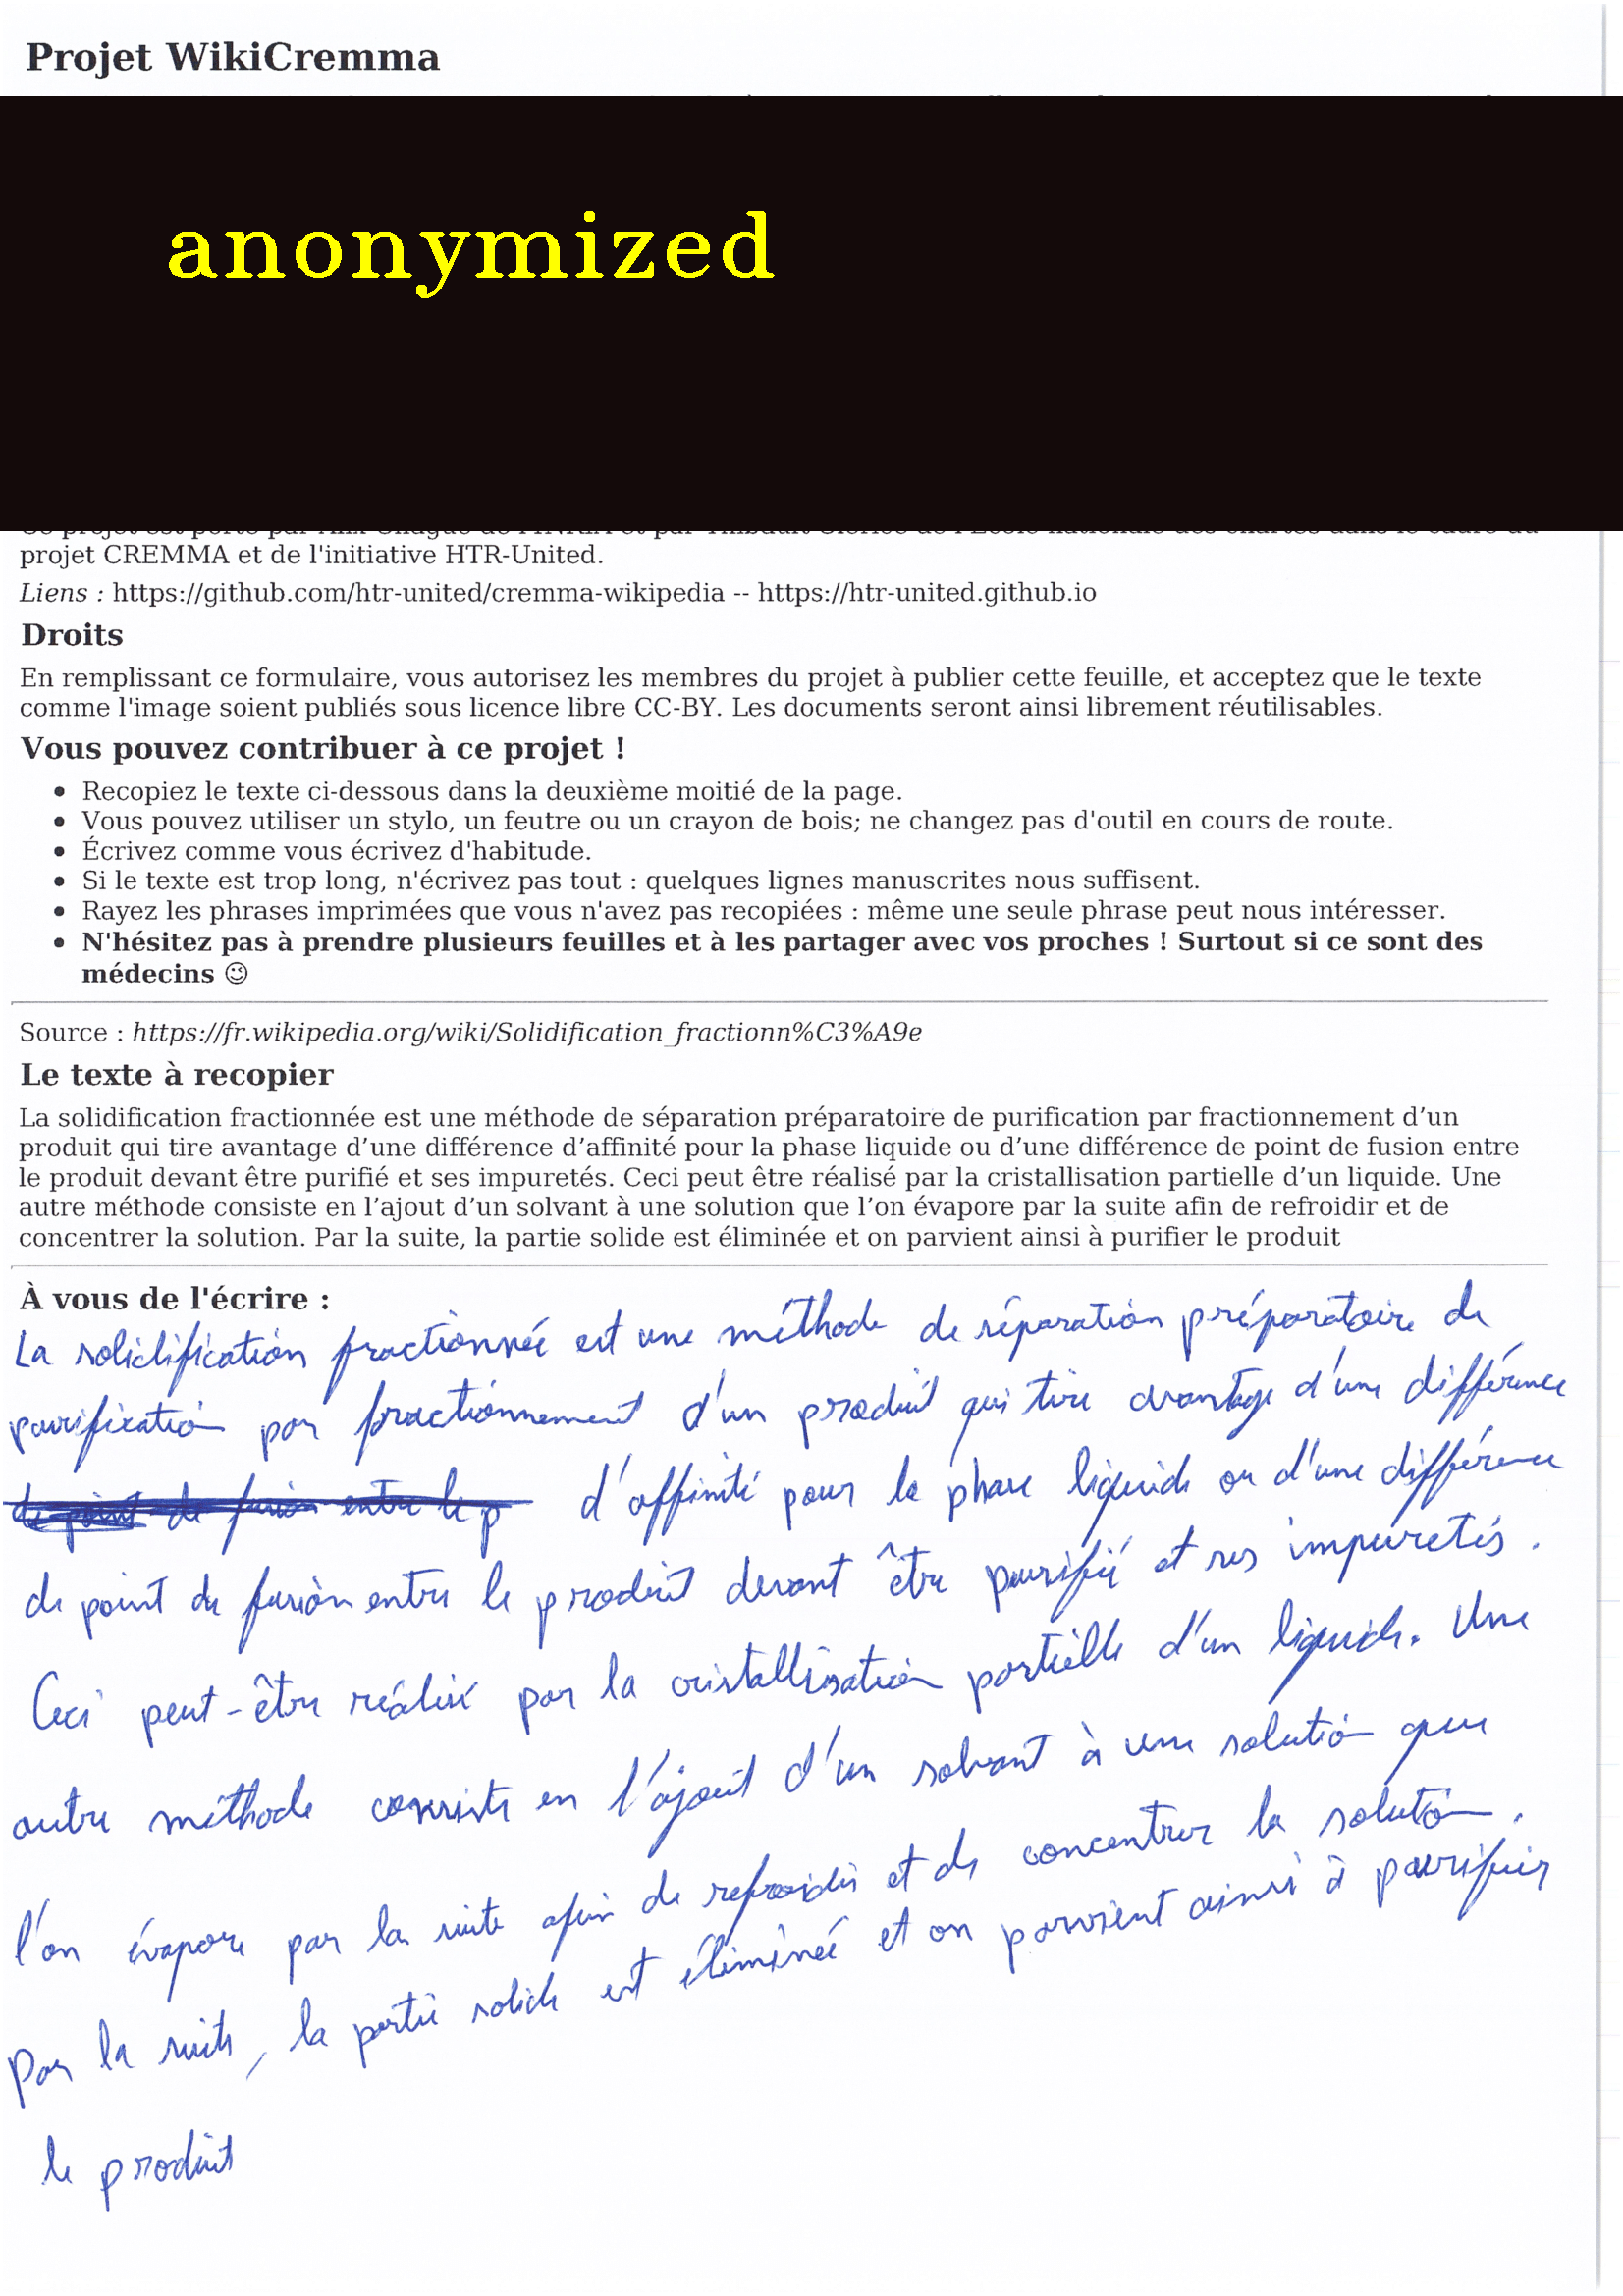 Projet WikiCremma
anonymized
projet CREMMA et de l'initiative HTR-United.
Liens : https://github.com/htr-united/cremma-wikipedia -- https://htr-united.github.io
Droits
En remplissant ce formulaire, vous autorisez les membres du projet à publier cette feuille, et acceptez que le texte
comme l'image soient publiés sous licence libre CC-BY. Les documents seront ainsi librement réutilisables.
Vous pouvez contribuer à ce projet !
• Recopiez le texte ci-dessous dans la deuxième moitié de la page.
• Vous pouvez utiliser un stylo, un feutre ou un crayon de bois; ne changez pas d'outil en cours de route.
• Écrivez comme vous écrivez d'habitude.
• Si le texte est trop long, n'écrivez pas tout : quelques lignes manuscrites nous suffisent.
• Rayez les phrases imprimées que vous n'avez pas recopiées : même une seule phrase peut nous intéresser.
• N'hésitez pas à prendre plusieurs feuilles et à les partager avec vos proches ! Surtout si ce sont des
médecins 😉
Source : https://fr.wikipedia.org/wiki/Solidification_fractionn%C3%A9e
Le texte à recopier
La solidification fractionnée est une méthode de séparation préparatoire de purification par fractionnement d’un
produit qui tire avantage d’une différence d’affinité pour la phase liquide ou d’une différence de point de fusion entre
le produit devant être purifié et ses impuretés. Ceci peut être réalisé par la cristallisation partielle d’un liquide. Une
autre méthode consiste en l’ajout d’un solvant à une solution que l’on évapore par la suite afin de refroidir et de
concentrer la solution. Par la suite, la partie solide est éliminée et on parvient ainsi à purifier le produit
À vous de l'écrire :
La solidification fractionnée est une méthode de séparation préparatoire de
purification par fractionnement d'un produit qui tire avantage d'une différence
de point de fusion entre le p d'affinité pour la phase liquide ou d'une différence
de point de fusion entre le produit devant être purifié et ses impuretés.
Ceci peut-être réalisé par la cristallisation partielle d'un liquide. Une
autre méthode consiste en l'ajout d'un solvant à une solution que
l'on évapore par la suite afin de refroidir et de concentrer la solution.
Par la suite, la partie solide est éliminée et on parvient ainsi à purifier
le produit